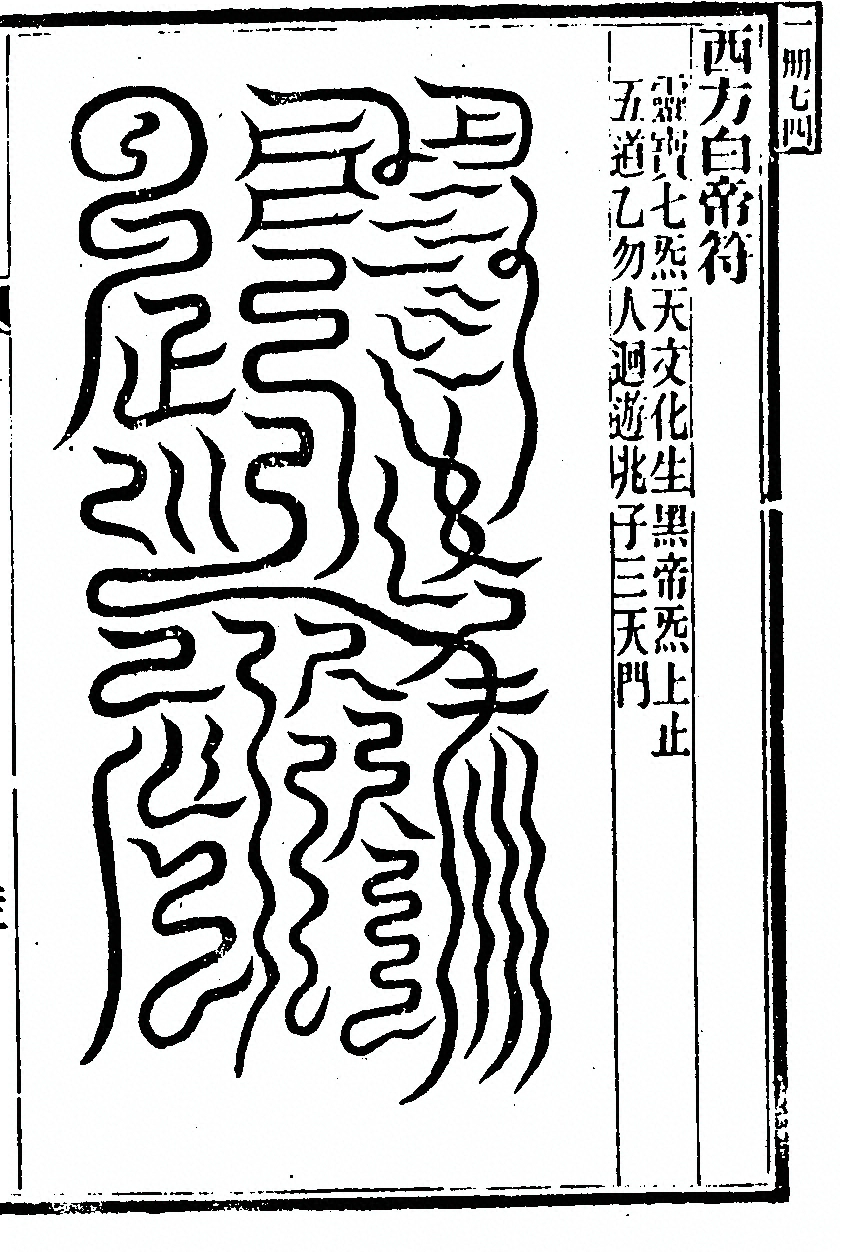 一册七四
西方白帝符
靈寶七炁天文化生黑帝炁上止
五道乙勿人迴遊兆子三天門